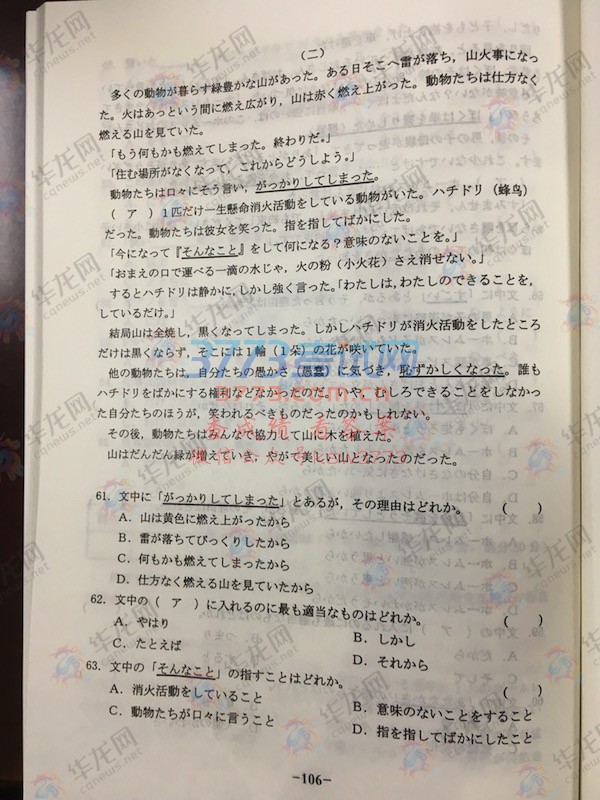 （二）
多くの動物が暮らす緑豊かな山があった。ある日そこへ雷が落ち，山火事になっ
た。火はあっという間に燃え広がり，山は赤く燃え上がった。動物たちは仕方なく
燃える山を見ていた。
「もう何もかも燃えてしまった。終わりだ。」
「住む場所がなくなって，これからどうしよう。」
動物たちは口々にそう言い，がっかりしてしまった。
（ ア ）1匹だけ一生懸命消火活動をしている動物がいた。ハチドリ（蜂鸟）
だった。動物たちは彼女を笑った。指を指してばかにした。
「今になって『そんなこと』をして何になる？意味のないことを。」
「おまえの口で運べる一滴の水じゃ，火の粉（小火花）さえ消せない。」
するとハチドリは静かに，しかし強く言った。「わたしは，わたしのできることを，
しているだけ。」
結局山は全焼し，黒くなってしまった。しかしハチドリが消火活動をしたところ
だけは黒くならず，そこには1輪（1朵）の花が咲いていた。
他の動物たちは，自分たちの愚かさ（愚蠢）に気づき，恥ずかしくなった。誰も
ハチドリをばかにする権利などなかったのだ。いや，むしろできることをしなかっ
た自分たちのほうが，笑われるべきものだったのかもしれない。
その後，動物たちはみんなで協力して山に木を植えた。
山はだんだん緑が増えていき，やがて美しい山となったのだった。
61. 文中に「がっかりしてしまった」とあるが，その理由はどれか。 （ ）
A. 山は黄色に燃え上がったから
B. 雷が落ちてびっくりしたから
C. 何もかも燃えてしまったから
D. 仕方なく燃える山を見ていたから
62. 文中の（ ア ）に入れるのに最も適当なものはどれか。 （ ）
A. やはり B. しかし
C. たとえば D. それから
63. 文中の「そんなこと」の指すことはどれか。 （ ）
A. 消火活動をしていること B. 意味のないことをすること
C. 動物たちが口々に言うこと D. 指を指してばかにしたこと
-106-
华龙网
cqnews.net
3773.com.cn